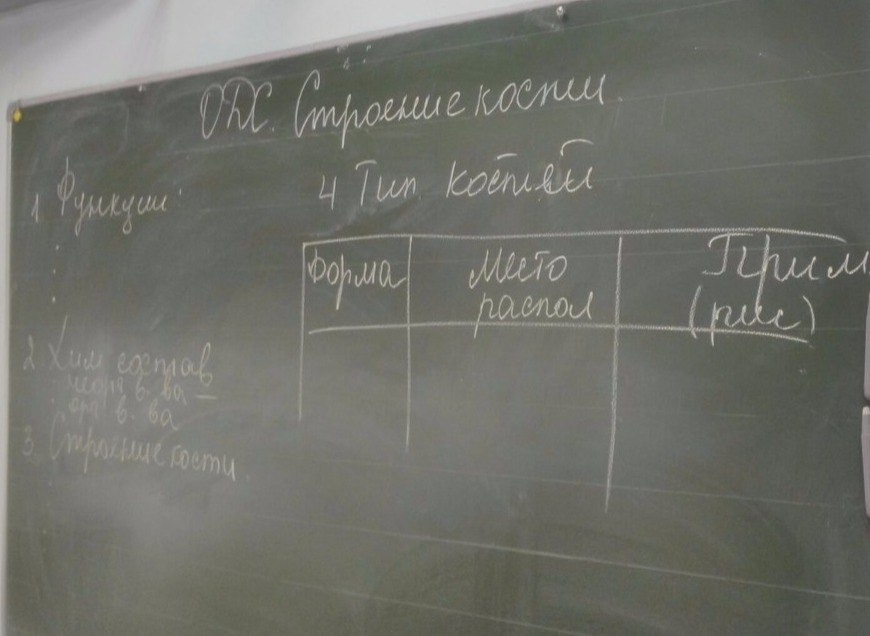 ОДС. Строение кости.
1 Функции:
2 Хим состав
неорг в. ва –
орг в. ва
3 Строение кости
4 Тип костей
Форма
Место
распол
Прим
(рис)